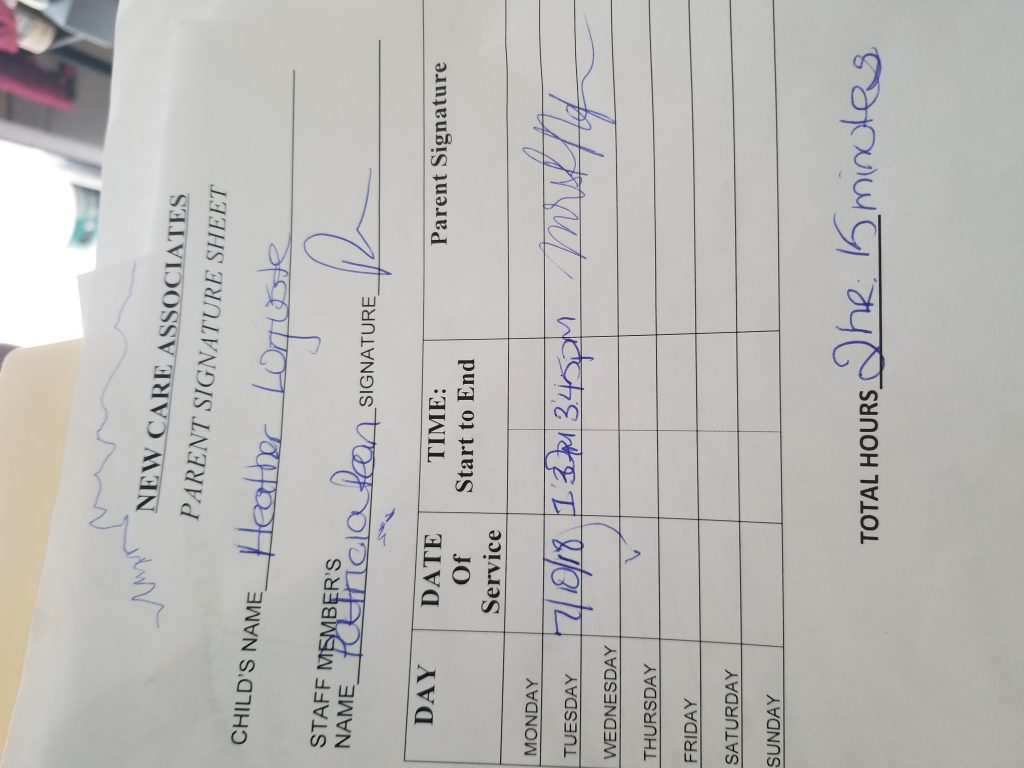 NEW CARE ASSOCIATES
PARENT SIGNATURE SHEET
CHILD'S NAME Heather
STAFF MEMBER'S
NAME Patricia SIGNATURE
DAY DATE Of Service TIME: Start to End Parent Signature
MONDAY
TUESDAY 7/10/18 3:45pm
WEDNESDAY
THURSDAY
FRIDAY
SATURDAY
SUNDAY
TOTAL HOURS 2hr: 15 minutes